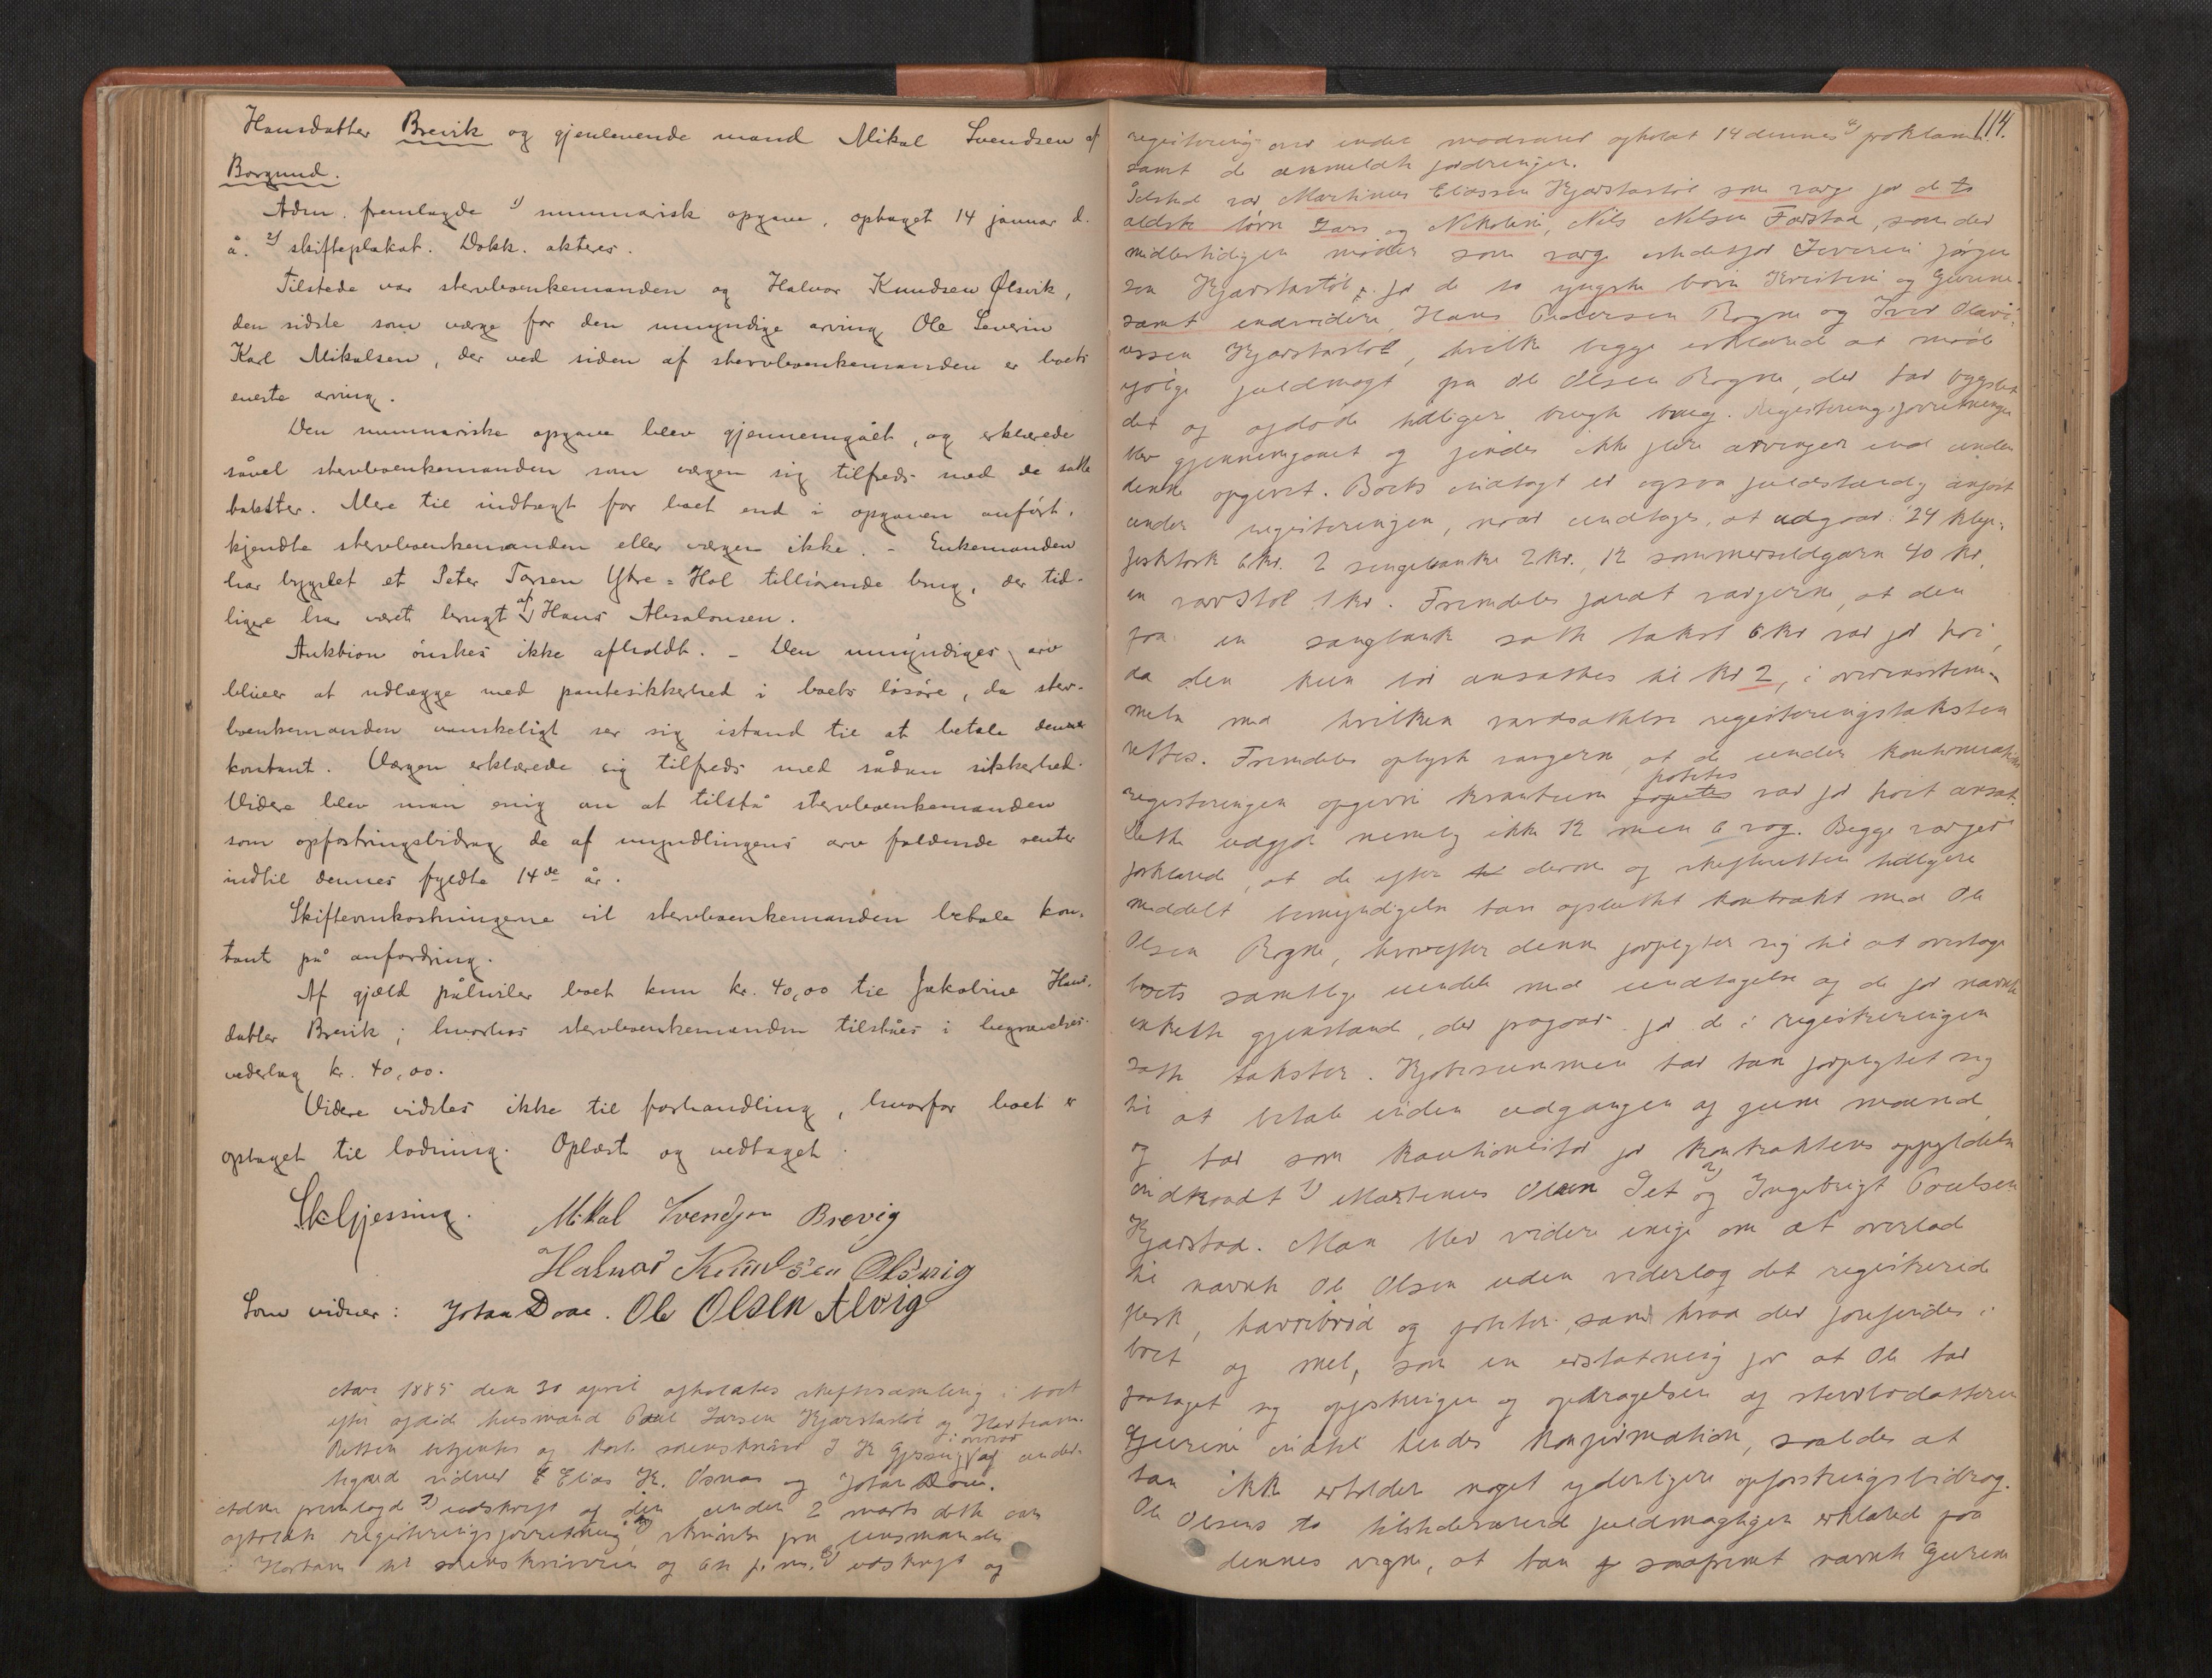 Hansdatter Brevik og gjenlevende mand Mikal Svendsen af
Borgund.
Adm. fremlagde 1) summarisk opgave, optaget 14 januar d.
å. 2) skifteplakat. Dokk. akteres.
Tilstede var stervboenkemanden og Halvor Knudsen Ølsvik,
den sidste som værge for den umyndige arving Ole Severin
Karl Mikalsen, der ved siden af stervboenkemanden er boets
eneste arving.
Den summariske opgave blev gjennemgået, og erklærede
såvel stervboenkemanden som værgen sig tilfreds med de satte
takster. Mere til indtægt for boet end i opgaven anført,
kjendte stervboenkemanden eller værgen ikke. - Enkemanden
har bygslet et Peter Larsen Ytre-Hol tilhørende brug, der tid-
ligere har været brugt af Hans Absalonsen.
Auktion ønskes ikke afholdt. - Den umyndiges arv
bliver at udlægge med pantesikkerhed i boets løsøre, da sterv-
boenkemanden vanskeligt ser sig istand til at betale denne
kontant. Værgen erklærede sig tilfreds med sådan sikkerhed.
Videre blev man enig om at tilstå stervboenkemanden
som opfostringsbidrag de af myndlingens arv faldende renter
indtil dennes fyldte 14de år.
Skifteomkostningene vil stervboenkemanden betale kon-
tant på anfordring.
Af gjæld påhviler boet kun kr. 40,00 til Jakobine Hans-
datter Brevik; hvorhos stervboenkemanden tilståes i begravelses-
vederlag kr. 40,00.
Videre vidstes ikke til forhandling, hvorfor boet er
optaget til lodning. Oplæst og vedtaget.
S K Gjessing. Mikal Svendsen Brevig
Halvor Knudsen Ølsvig
Som vidner: Johan Doae. Ole Olsen Alvig
Aar 1885 den 30 april afholdtes skiftesamling i boet
efter afdød husmand Poul Larsen Kjærstastøl og Haram.
Retten betjentes af konst. sorenskriver S K Gjessing i overvær af under-
tegned vidner Elias K. Osnas og Johan Doae.
Adm fremlagde 1) udskrift af den under 2 marts dette aar
afholdte registreringsforretning, 2) skrivelse fra lensmanden
i Haram til sorenskriveren af 6te f. m. 3) udskrift af
114.
registrering over endel modvand afholdt 14 dennes 4) proklama
samt de anmeldte fordringer.
Tilsted var Martinus Eliassen Kjærstastøl som værge for de to
ældste børn Lars og Nikoline, Nils Nilsen Farstad, som der
midlertidigen møder som værge istedetfor Severin Jørgen-
sen Kjærstastøl, for de to yngste børn Kristine og Gurine,
samt endvidere Hans Pedersen Rogne og Iver Olavi-
ussen Kjærstastøl, hvilke begge erklæred at møde
ifølge fuldmagt fra Ole Olsen Rogne, der har bygslet
det af afdøde tidligere brugte brug. Registreringsforretningen
blev gjennemgaaet og fandtes ikke flere arvinger end under
denne opgivet. Boets indtægt er ogsaa fuldstændig anført
under registreringen, naar undtages, at udgaar: 24 klip-
fisktorsk 6 kr. 2 sengebænke 2 kr., 12 sommersildgarn 40 kr,
en vævstol 1 kr. Fremdeles fandt værgerne, at den
paa en sengbænk satte takst 6 kr var for høi,
da den kun bør ansættes til kr 2, i overensstem-
melse med hvilken værdsættelse registreringstaksten
rettes. Fremdeles oplyste værgerne, at de under
registreringen opgivne kvantum potetes var for høit ansat.
Dette udgjør nemlig ikke 12 men 6 vog. Begge værger
forklared, at de efter derom af skifteretten tidligere
meddelt bemyndigelse har opsluttet kontrakt med Ole
Olsen Rogne, hvorefter denne forpligter sig til at overtage
boets samtlige eiendele med undtagelse af de før nævnte
enkelte gjenstande, der fragaar for de i registreringen
satte takster. Kjøbesummen har han forpligtet sig
til at betale inden udgangen af june maaned,
og har som kautionister for kontraktens opfyldelse
indkaadt 1) Martinus Olsen Set 2) og Ingebrigt Poulsen
Kjærstad. Man blev videre enige om at overlade
til nævnte Ole Olsen uden vederlag det registrerede
flesk, havrebrød og poteter, samt hvad der forefindes i
boet af mel, som en erstatning for at Ole har
paataget sig opfostringen og opdragelsen af stervbodatteren
Gurine indtil hendes konfirmation, saaledes at
han ikke erholder noget yderligere opfostringsbidrag.
Ole Olsens to tilstedeværende fuldmægtigen erklæred paa
dennes vegne, at han saafremt nævnte Gurine